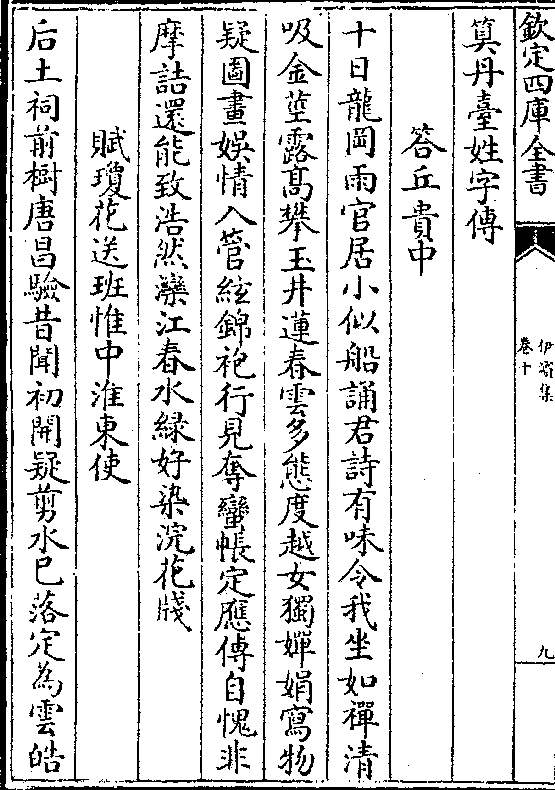 欽定四庫全書
伊濱集
卷十
九
筭丹臺姓字傳
答丘貴中
十日龍岡雨官居小似船誦君詩有味令我坐如禪清
吸金莖露髙攀玉井蓮春雲多態度越女獨嬋娟寫物
疑圖畫娯情入管絃錦袍行見奪蠻帳定應傳自愧非
摩詰還能致浩然灤江春水緑好染浣花牋
賦瓊花送班惟中淮東使
后土祠前樹唐昌驗昔聞初開疑剪水已落定為雲皓